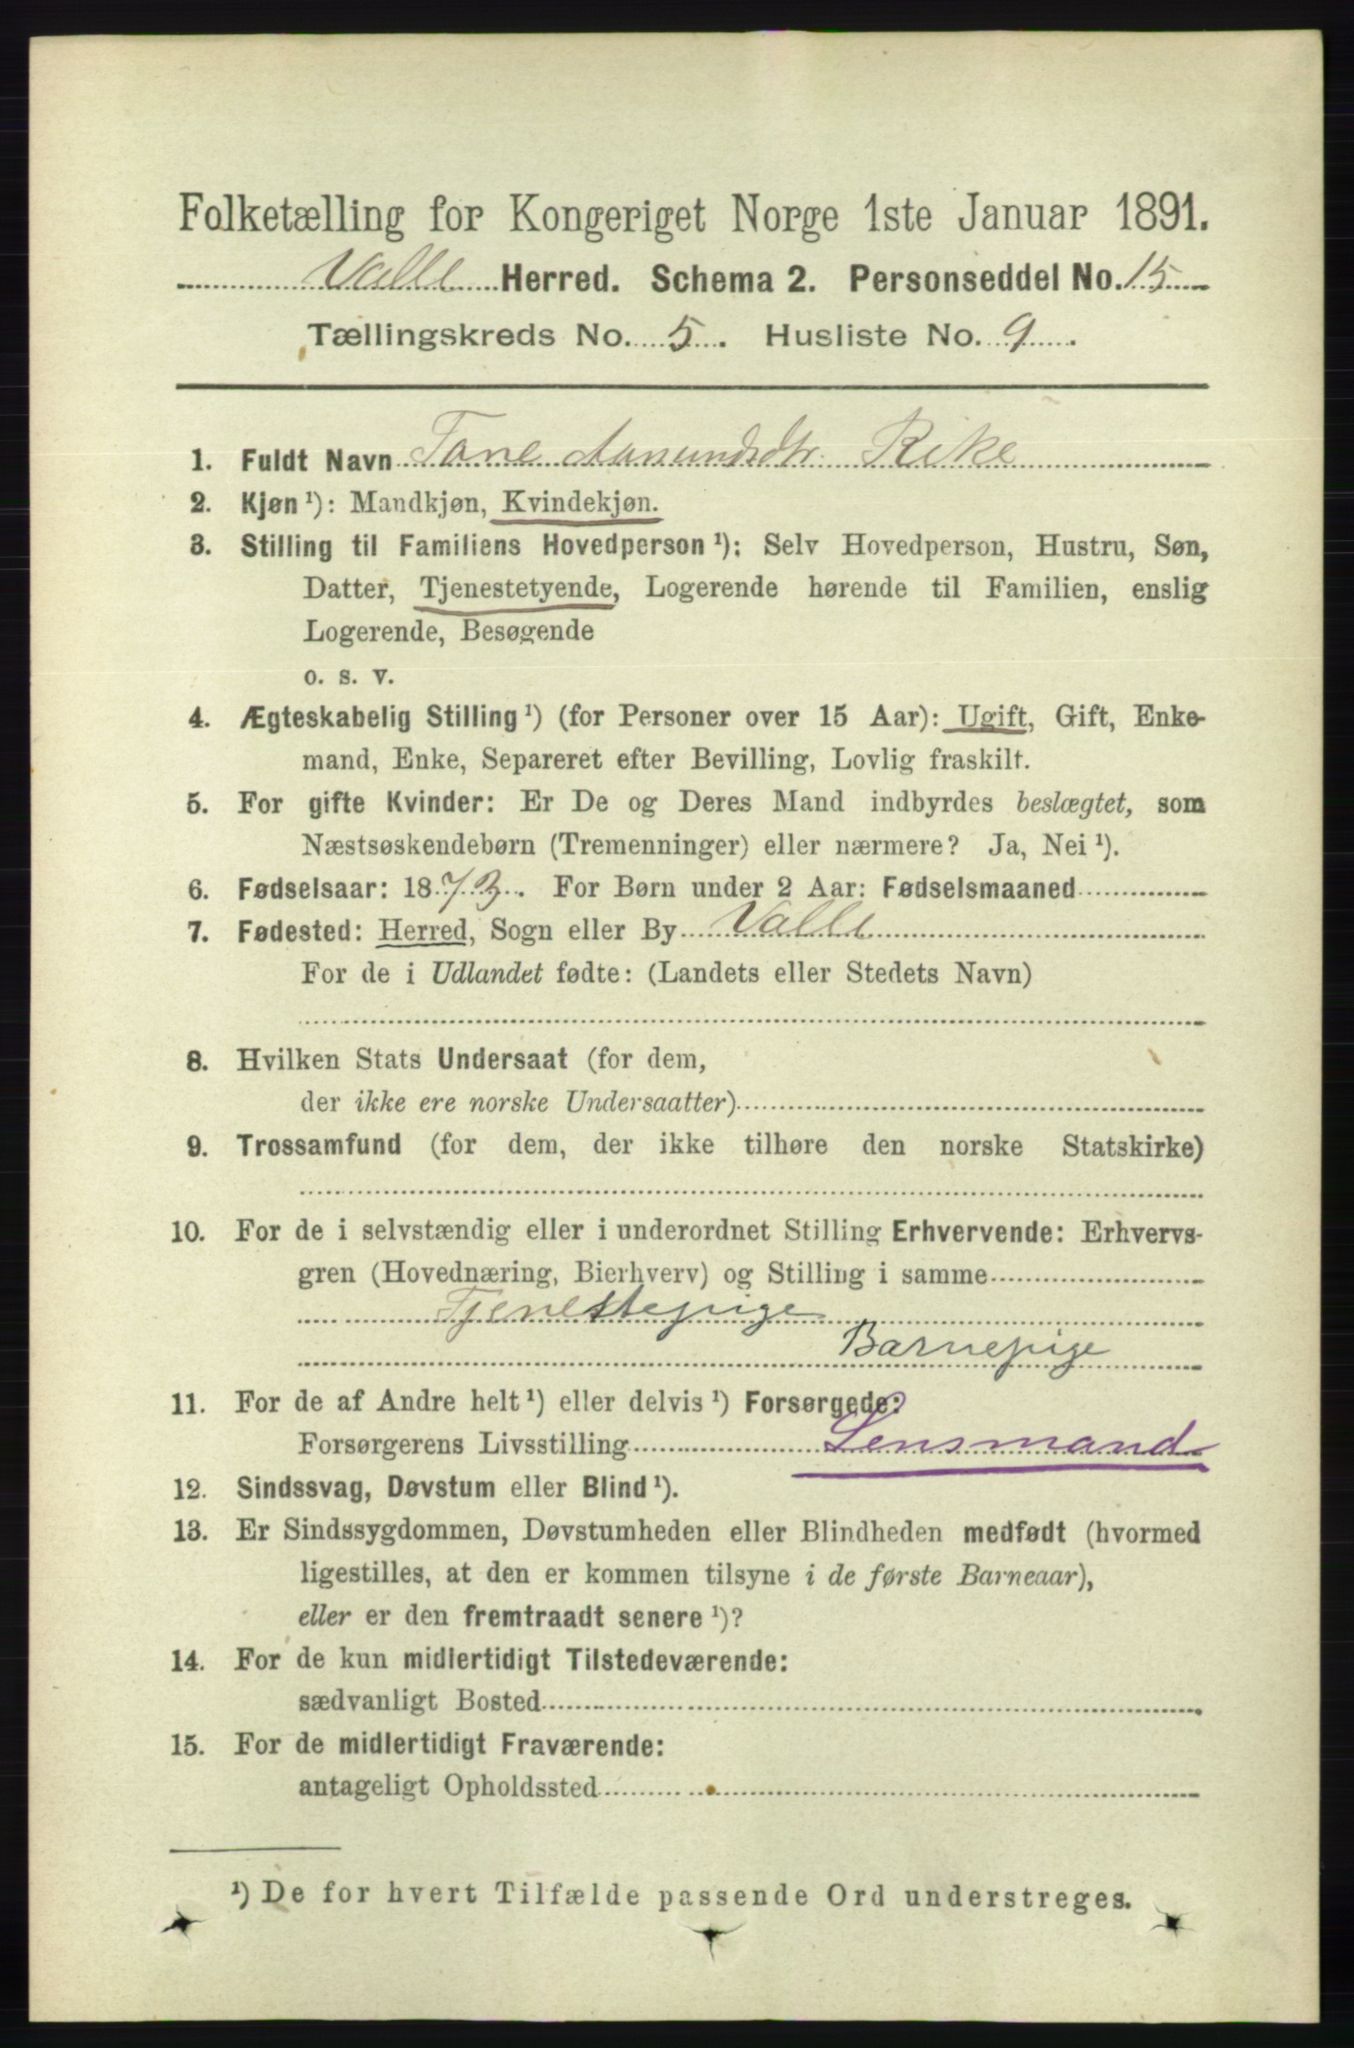 Folketælling for Kongeriget Norge 1ste Januar 1891.
Valle Herred. Schema 2. Personseddel No. 15
Tællingskreds No. 5. Husliste No. 9.
1. Fuldt Navn Tone Aasundsdtr. Rike
2. Kjøn ¹): Mandkjøn, Kvindekjøn.
3. Stilling til Familiens Hovedperson ¹): Selv Hovedperson, Hustru, Søn,
Datter, Tjenestetyende, Logerende hørende til Familien, enslig
Logerende, Besøgende
o. s. v.
4. Ægteskabelig Stilling ¹) (for Personer over 15 Aar): Ugift, Gift, Enke-
mand, Enke, Separeret efter Bevilling, Lovlig fraskilt.
5. For gifte Kvinder: Er De og Deres Mand indbyrdes beslægtet, som
Næstsøskendebørn (Tremenninger) eller nærmere? Ja, Nei ¹).
6. Fødselsaar: 1873. For Børn under 2 Aar: Fødselsmaaned
7. Fødested: Herred, Sogn eller By Valle
For de i Udlandet fødte: (Landets eller Stedets Navn)
8. Hvilken Stats Undersaat (for dem,
der ikke ere norske Undersaatter)
9. Trossamfund (for dem, der ikke tilhøre den norske Statskirke)
10. For de i selvstændig eller i underordnet Stilling Erhvervende: Erhvervs-
gren (Hovednæring, Bierhverv) og Stilling i samme
Tjenestepige
Barnepige
11. For de af Andre helt ¹) eller delvis ¹) Forsørgede:
Forsørgerens Livsstilling Lensmand
12. Sindssvag, Døvstum eller Blind ¹).
13. Er Sindssygdommen, Døvstumheden eller Blindheden medfødt (hvormed
ligestilles, at den er kommen tilsyne i de første Barneaar),
eller er den fremtraadt senere ¹)?
14. For de kun midlertidigt Tilstedeværende:
sædvanligt Bosted
15. For de midlertidigt Fraværende:
antageligt Opholdssted
¹) De for hvert Tilfælde passende Ord understreges.